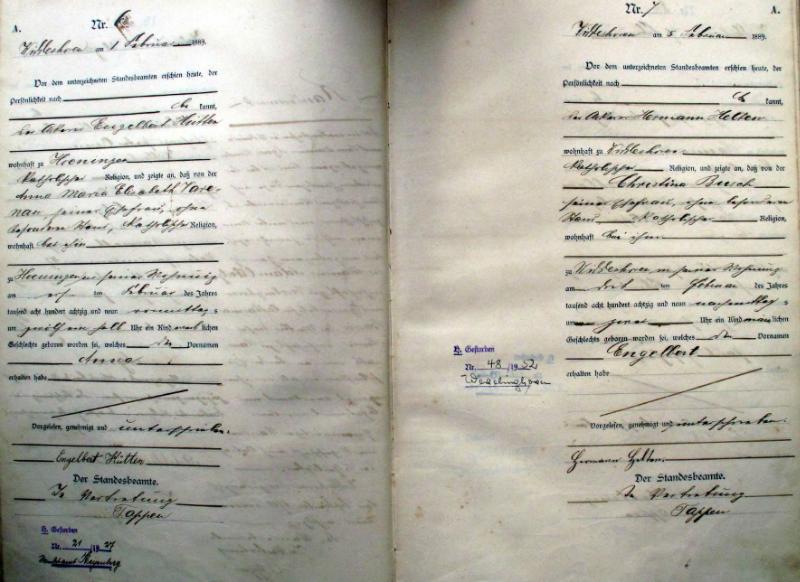 A.
Nr. 6
am 1 Februar 1889.
Vor dem unterzeichneten Standesbeamten erschien heute, der
Persönlichkeit nach
kannt,
der Akerer Engelbert Hütten
wohnhaft zu Hoeningen
katholischer Religion, und zeigte an, daß von der
Anna Maria Elisabeth
seiner Ehefrau, ohne
besondern Stand, katholischer Religion,
wohnhaft bei ihm
zu Hoeningen in seiner Wohnung
am ersten Februar des Jahres
tausend acht hundert achtzig und neun vormittags
um zwölf ein halb Uhr ein Kind weiblichen
Geschlechts geboren worden sei, welches den Vornamen
Anna
erhalten habe
Vorgelesen, genehmigt und unterschrieben.
Engelbert Hütten
Der Standesbeamte.
In Vertretung
Tappen
H. Gestorben
Nr. 21/1937
Nr. 7
A.
am 5 Februar 1889.
Vor dem unterzeichneten Standesbeamten erschien heute, der
Persönlichkeit nach
kannt,
der Akerer Hermann Helten
wohnhaft zu
katholischer Religion, und zeigte an, daß von der
Christina
seiner Ehefrau, ohne besondern
Stand, katholischer Religion,
wohnhaft bei ihm
zu in seiner Wohnung
am Februar des Jahres
tausend acht hundert achtzig und neun nachmittags
um zwei Uhr ein Kind männlichen
Geschlechts geboren worden sei, welches den Vornamen
Engelbert
erhalten habe
Vorgelesen, genehmigt und unterschrieben.
Hermann Helten
Der Standesbeamte.
In Vertretung
Tappen
H. Gestorben
Nr. 48/1952